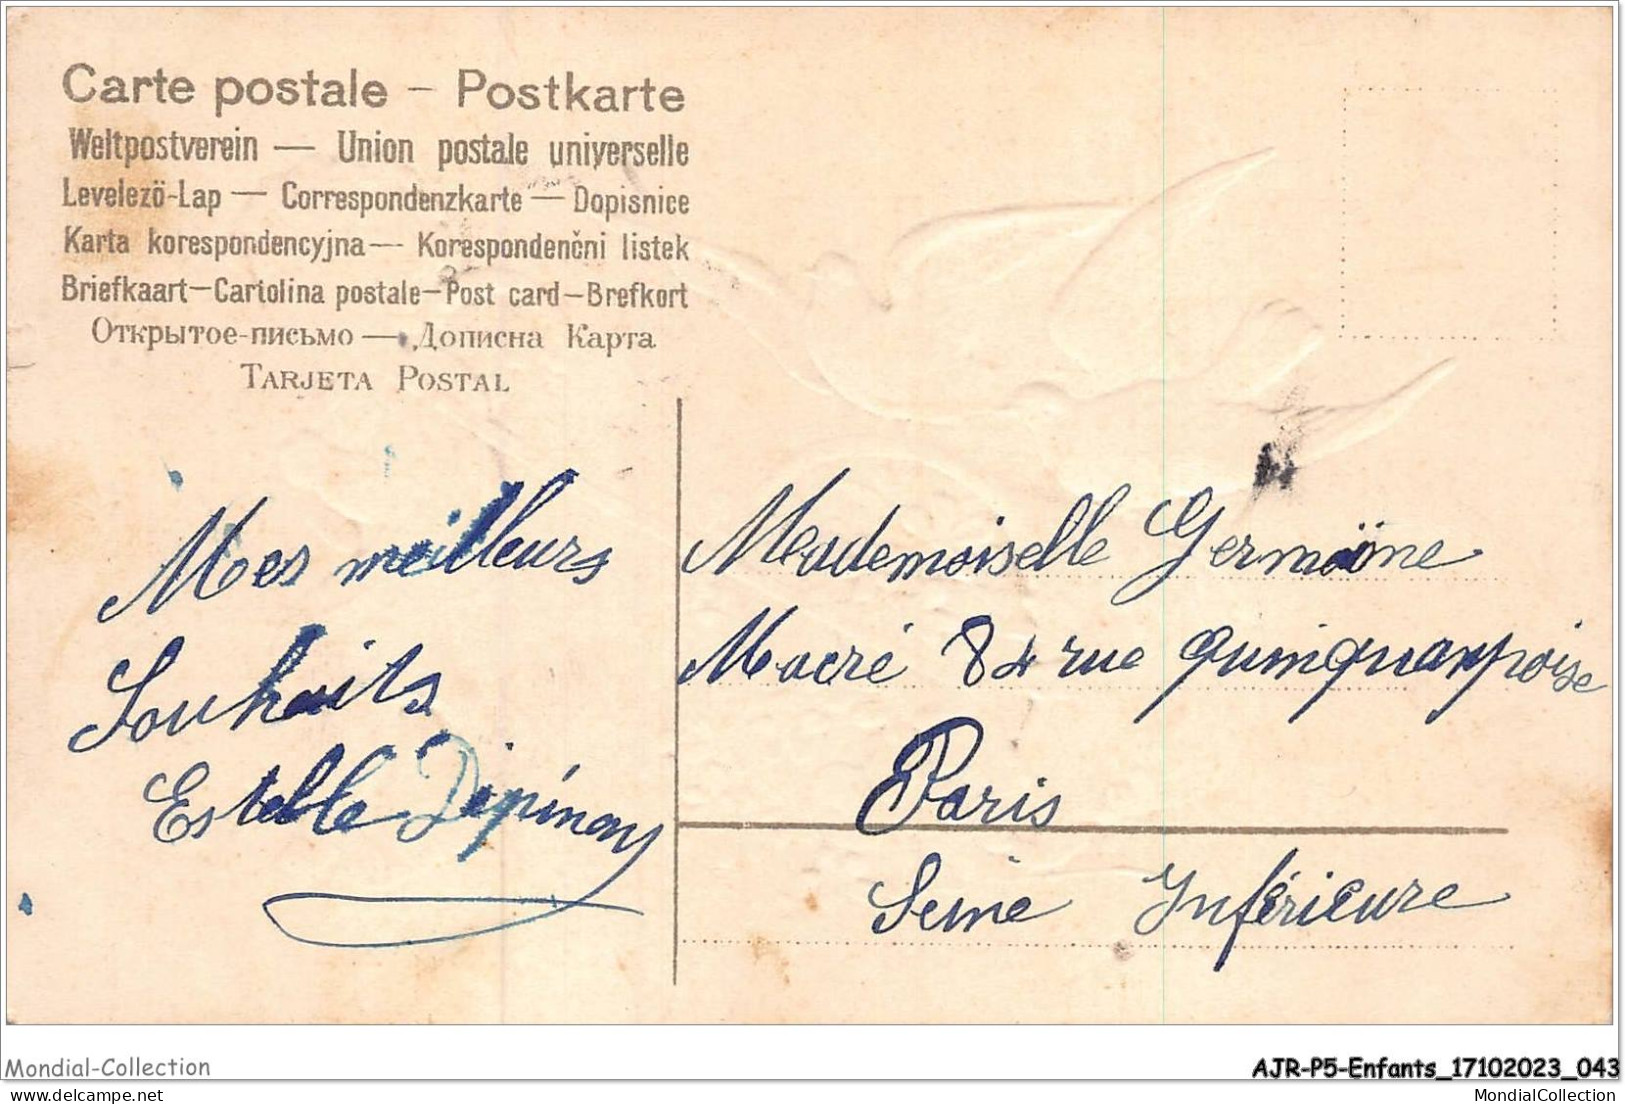 Carte postale – Postkarte
Weltpostverein — Union postale universelle
Levelezö-Lap — Correspondenzkarte — Dopisnice
Karta korespondencyjna — Korespondenčni listek
Briefkaart—Cartolina postale—Post card—Brefkort
Открытое-письмо — Дописна Карта
TARJETA POSTAL
Mes meilleurs
Souhaits
Estelle Dépinay
Mademoiselle Germaine
Macré 84 rue Quinquanpoise
Paris
Seine Inférieure
Mondial-Collection
AJR-P5-Enfants_17102023_043
Buy and sell on www.delcampe.net
MondialCollection